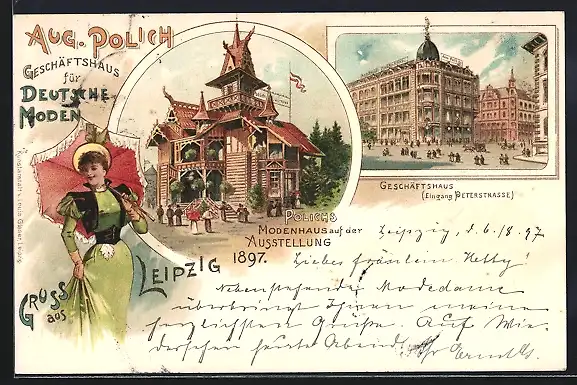 AUG. POLICH
GESCHÄFTSHAUS
für
DEUTSCHE
MODEN
POLICHS
MODENHAUS auf der
AUSSTELLUNG
1897.
GESCHÄFTSHAUS
(Eingang PETERSTRASSE)
GRUSS
aus
LEIPZIG
Leipzig, d. 6/8. 97
Liebes Fräulein Hetty!
Nebenstehende Modedame
überbringt Ihnen meine
herzlichsten Grüße. Auf Wie-
dersehen heute Abend.